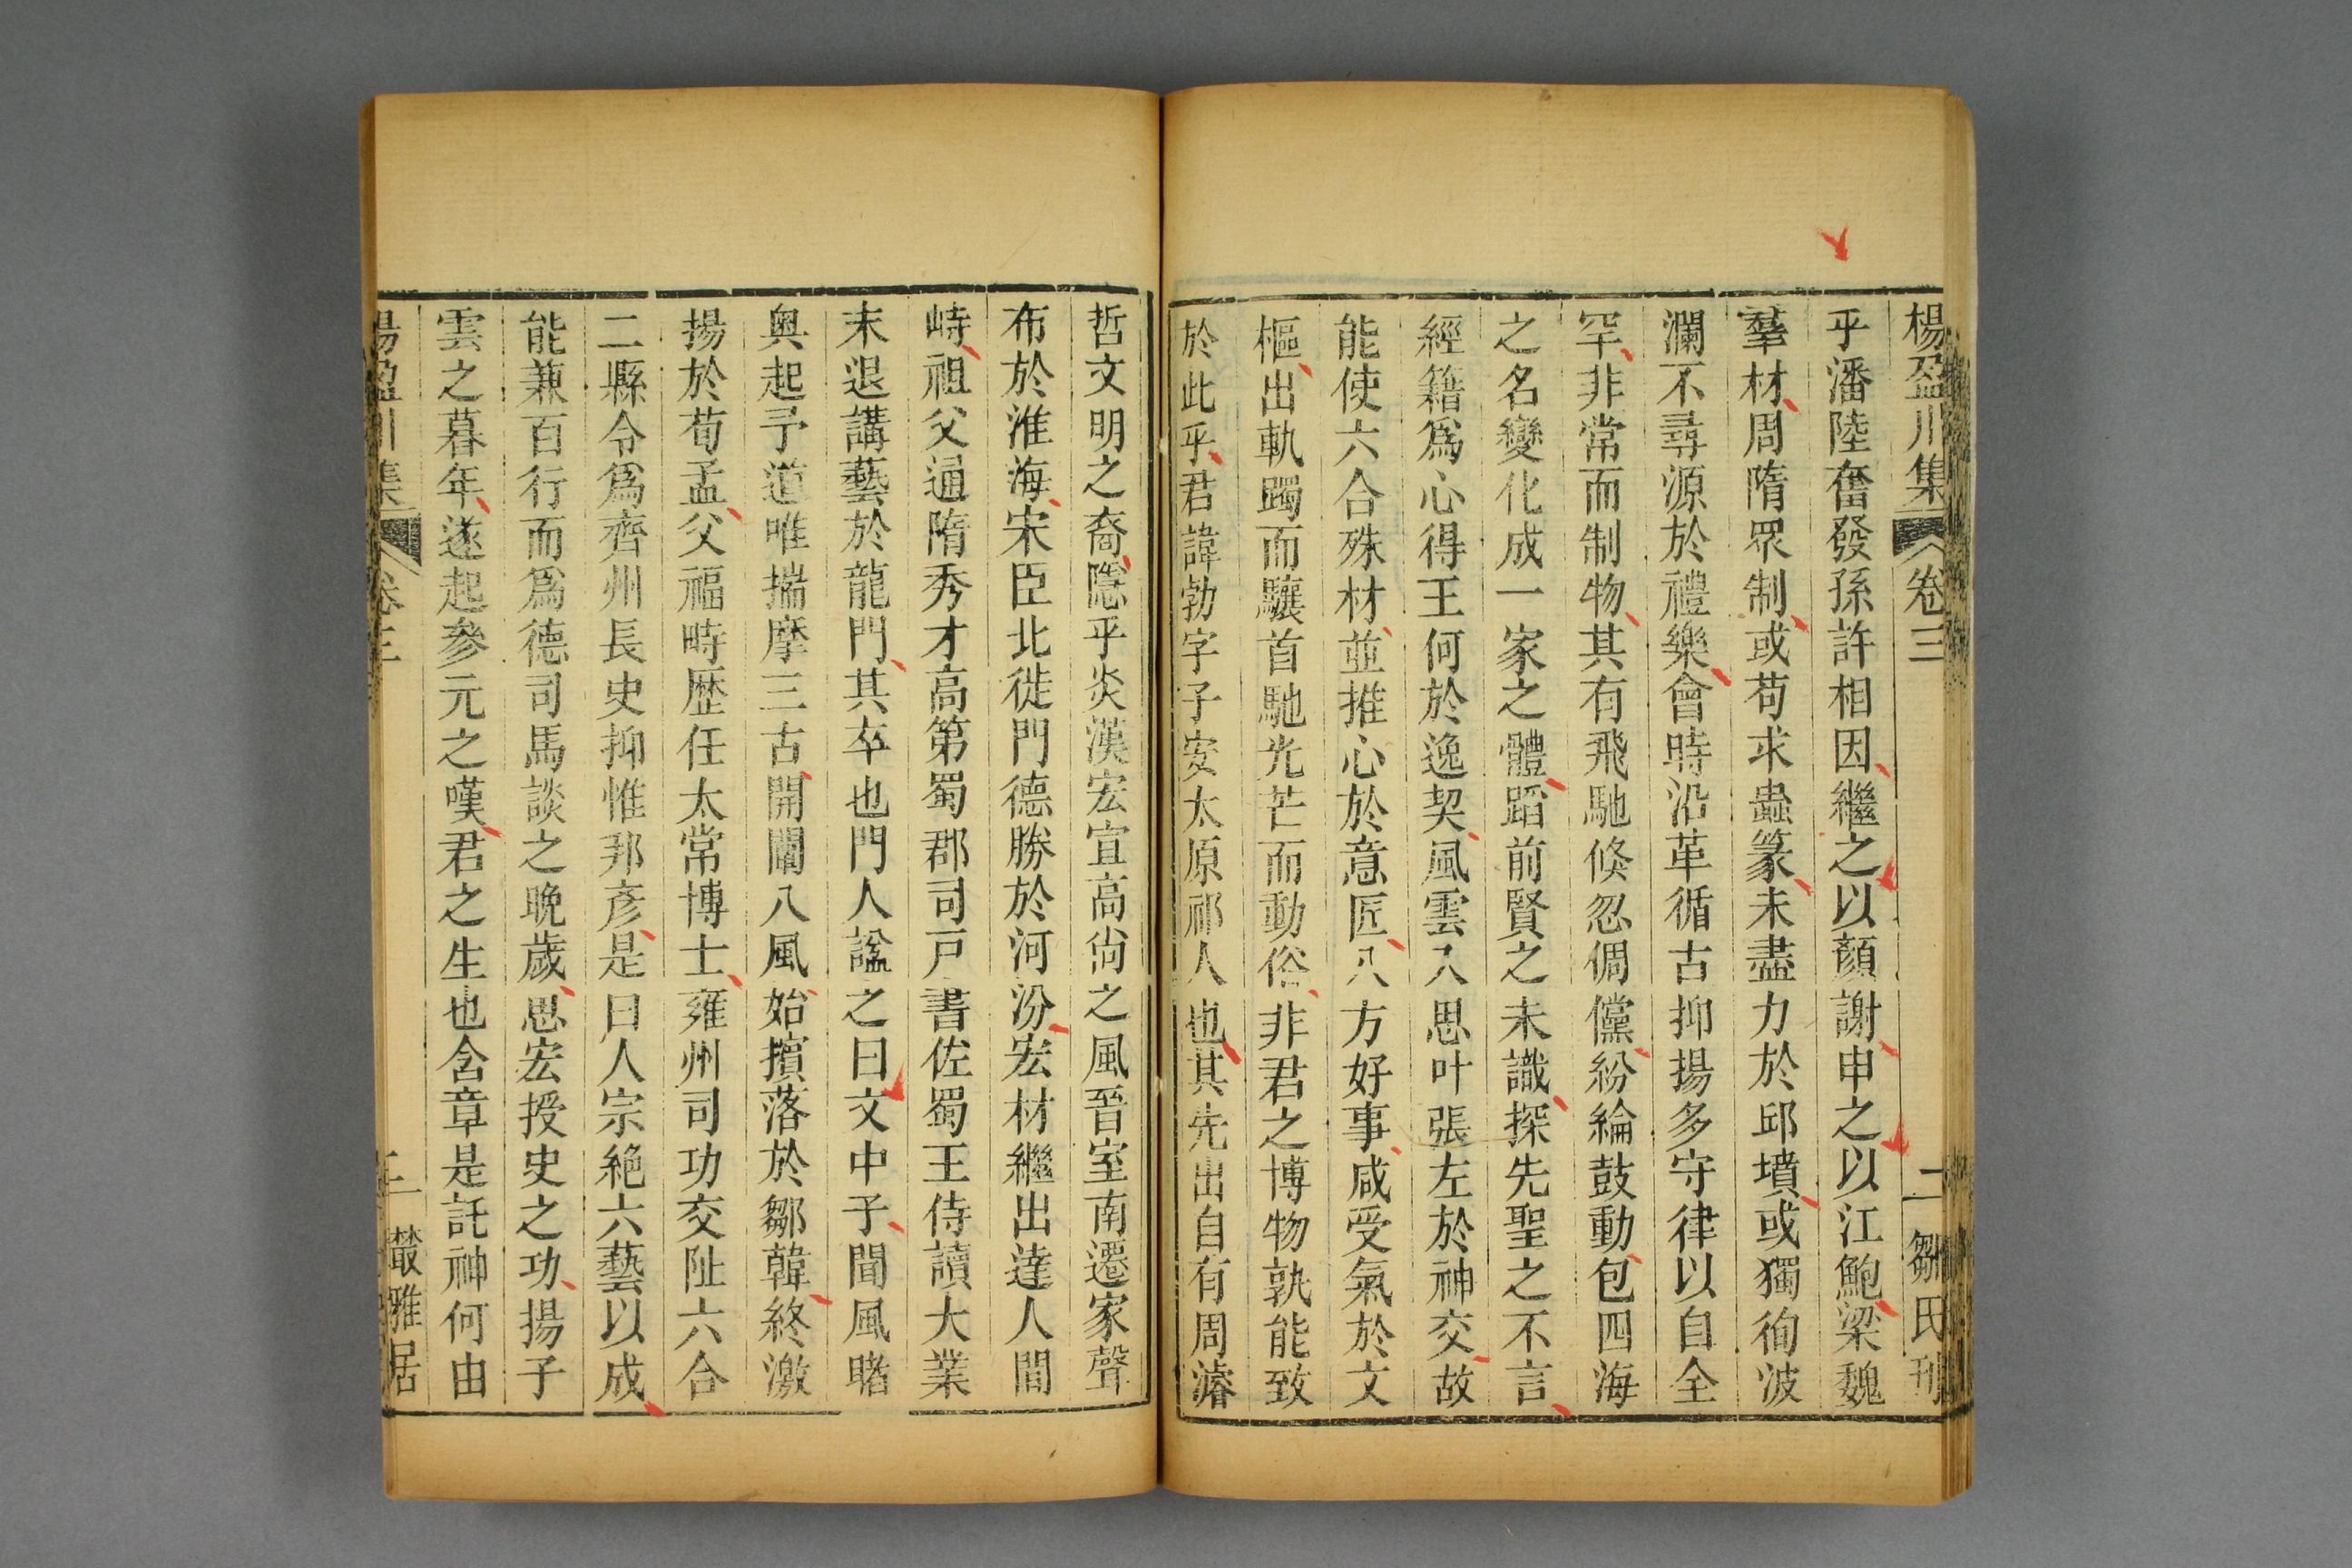 楊盈川集　卷三　二　鄒氏刊
乎潘陸奮發孫許相因繼之以顏謝申之以江鮑梁魏
羣材周隋眾制或苟求蟲篆未盡力於邱墳或獨徇波
瀾不尋源於禮樂會時沿革循古抑揚多守律以自全
罕非常而制物其有飛馳倐忽倜儻紛綸鼓動包四海
之名變化成一家之體蹈前賢之未識探先聖之不言
經籍爲心得王何於逸契風雲入思叶張左於神交故
能使六合殊材並推心於意匠八方好事咸受氣於文
樞出軌躅而驤首馳光芒而動俗非君之博物孰能致
於此乎君諱勃字子安太原祁人也其先出自有周濬
哲文明之裔隱乎炎漢宏宣高尚之風晉室南遷家聲
布於淮海宋臣北徙門德勝於河汾宏材繼出達人間
峙祖父通隋秀才高第蜀郡司戸書佐蜀王侍讀大業
末退講藝於龍門其卒也門人諡之曰文中子聞風睹
奥起予道唯揣摩三古開闡八風始擯落於鄒韓終激
揚於荀孟父福畤歴任太常博士雍州司功交阯六合
二縣令爲齊州長史抑惟邦彥是曰人宗絶六藝以成
能兼百行而爲德司馬談之晚歲思宏授史之功揚子
雲之暮年遂起參元之嘆君之生也含章是託神何由
楊盈川集　卷三　二　叢雅居